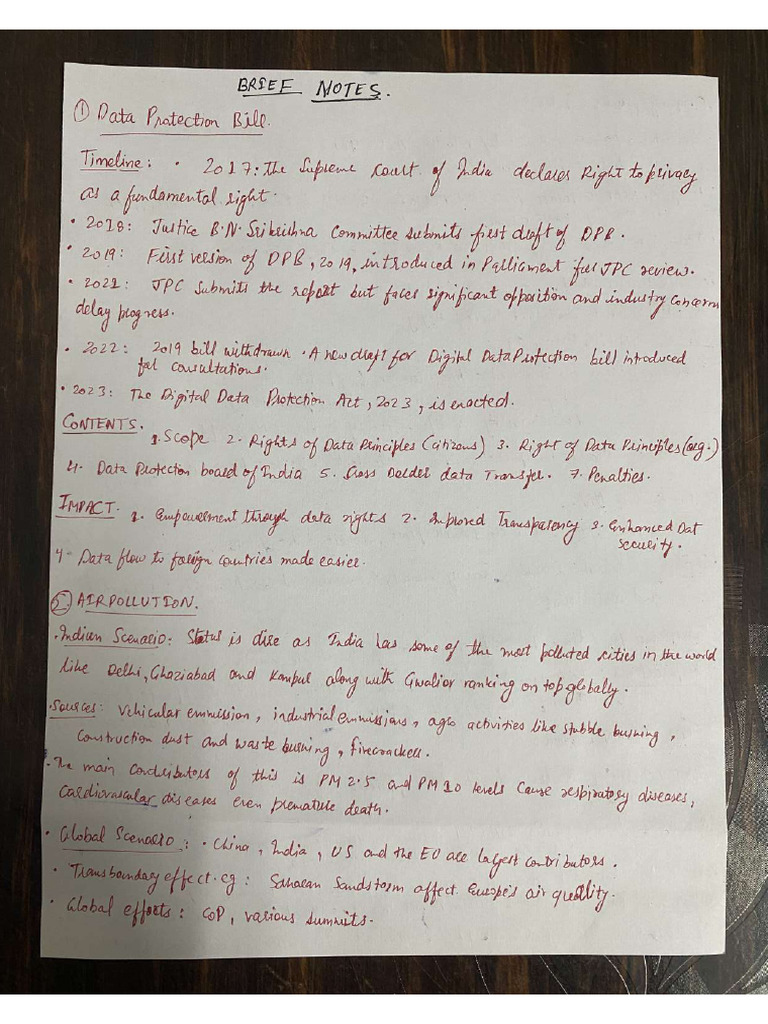 BRIEF NOTES.
① Data Protection Bill.
Timeline: • 2017: the Supreme court of India declares Right to privacy
as a fundamental right.
• 2018: Justice B.N. Srikrishna Committee submits first draft of DPB.
• 2019: First version of DPB, 2019, introduced in Parliament for JPC review.
• 2021: JPC submits the report but faces significant opposition and industry concerns
delay progress.
• 2022: 2019 bill withdrawn. A new draft for Digital Data Protection bill introduced
for consultations.
• 2023: The Digital Data Protection Act, 2023, is enacted.
CONTENTS.
1. Scope 2. Rights of Data Principles (citizens) 3. Right of Data Principles (org.)
4. Data Protection board of India 5. Cross Border data Transfer. 7. Penalties.
IMPACT. 1. Empowerment through data rights 2. Improved Transparency 3. Enhanced Dat
security.
4- Data flow to foreign countries made easier.
⑤ AIR POLLUTION.
• Indian Scenario: Status is dire as India has some of the most polluted cities in the world
like Delhi, Ghaziabad and Kanpur along with Gwalior ranking on top globally.
• Sources: Vehicular emmission, industrial emmissions, agro activities like stubble burning,
construction dust and waste burning, firecrackers.
• The main contributors of this is PM 2.5 and PM 10 levels cause respiratory diseases,
cardiovascular diseases even premature death.
• Global Scenario: • China, India, US and the EU are largest contributors.
• Transboundary effect. eg: Saharan Sandstorm affect Europe's air quality.
• Global efforts: COP, various summits.